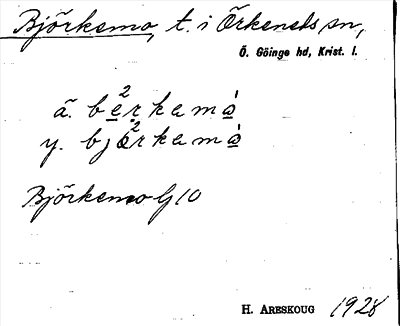 Björkemo, t. i Örkeneds sn,
Ö. Göinge hd, Krist. l.
ä. berkemå
y. bjørkemå
Björkemo G 10
H. Areskoug 1928